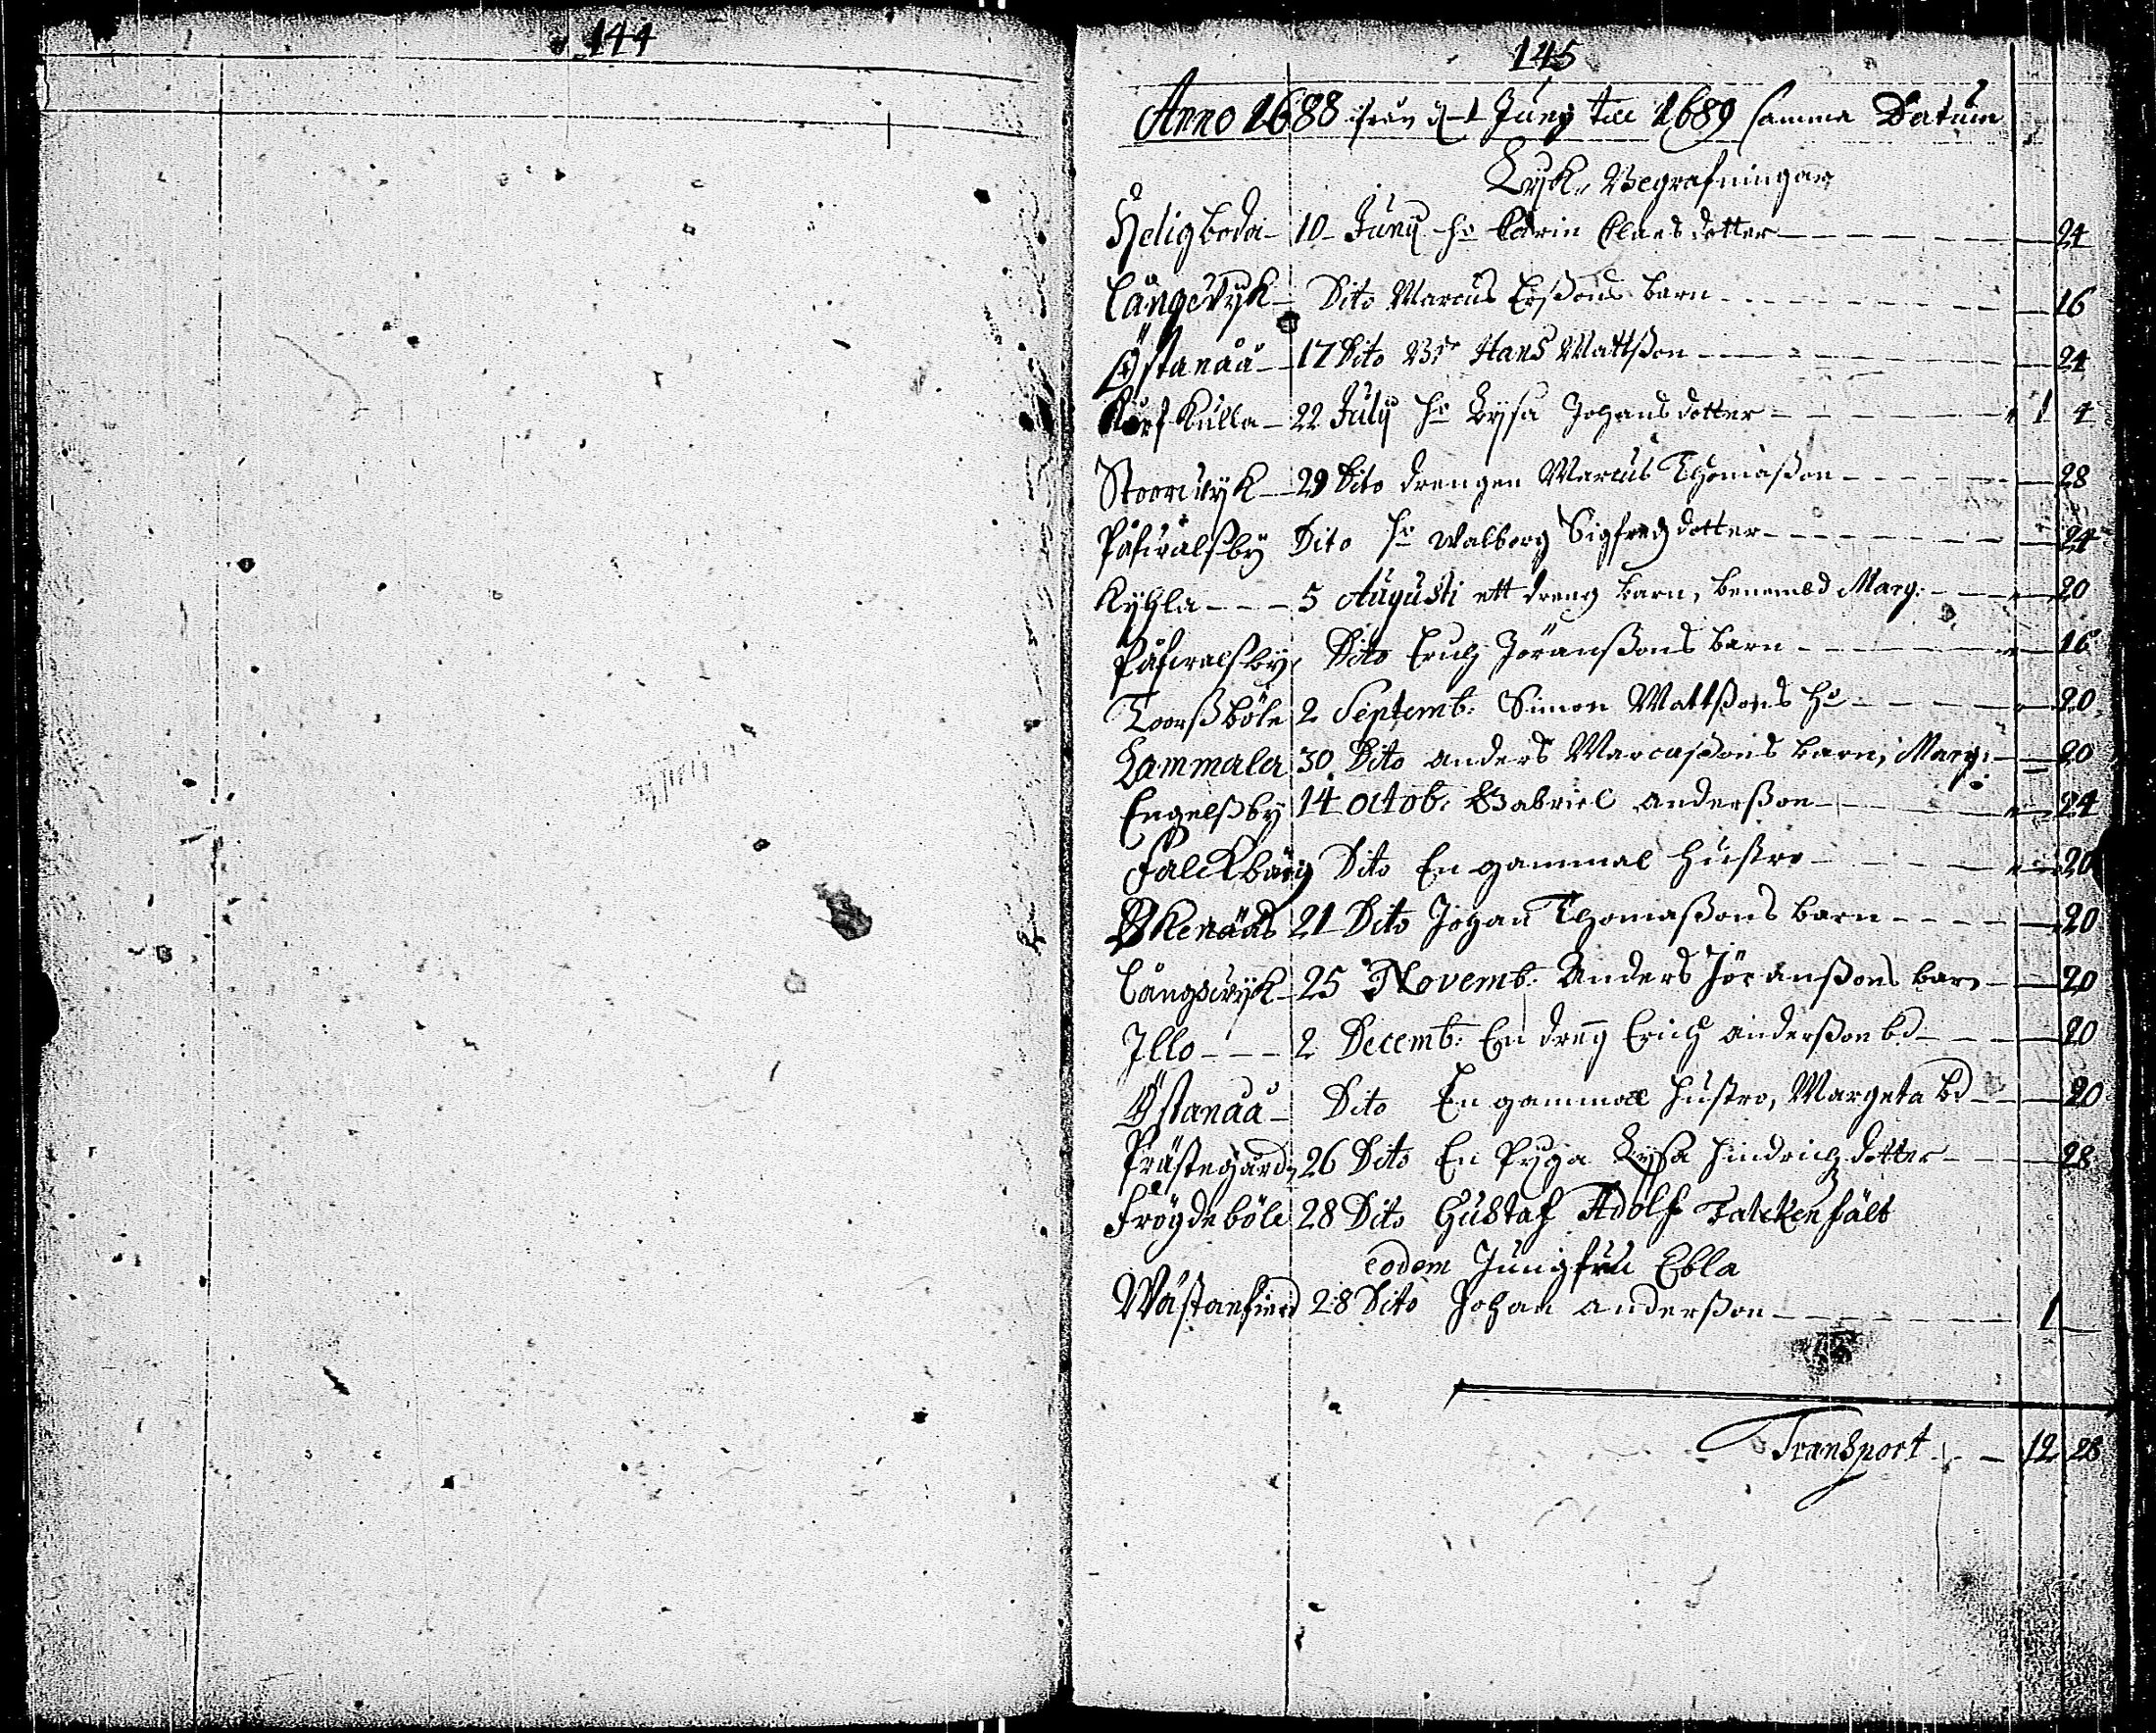 144
145
Anno 1688 ifrån d. 1 Junÿ till 1689 samma Datum
Lÿk Begrafningar
Heligboda 10 Junÿ ho Carin Claesdotter 24
Långewÿk Dito Marcus Erssons barn 16
Östanåå 17 Dito Hans Mattsson 24
Kulla 22 Julÿ ho Lÿsa Johansdotter 1 4
Stoorwÿk 29 Dito drengen Marcus Thomasson 28
Påfwalsbÿ Dito ho Walborg Sigfredzdotter 24
Kÿhla 5 Augusti ett dreng barn, benemd Marg: 20
Påfwalsbÿ Dito Erich Jöranssons barn 16
Toorssböle 2 Septemb: Simon Mattssons ho 20
Lammala 30 Dito Anders Marcussons barn, Marg: 20
Engelssby 14 Octob: Gabriel Andersson 24
Falckbärg Dito En gammal hustro 20
Skenääs 21 Dito Johan Thomassons barn 20
Långwÿk 25 Novemb: Anders Jöranssons barn 20
Illo 2 Decemb: En dreng Erich Andersson bd 20
Östanåå Dito En gammal hustro, Margeta bd 20
Prästegårdn 26 Dito En Pÿga Lÿsa Hindrichzdotter 28
Frögdeböle 28 Dito Gustaf Adolf Falckenfält
eodem Jungfru Ebla
Wästanfierd 28 Dito Johan Andersson 1
Transport 12 28